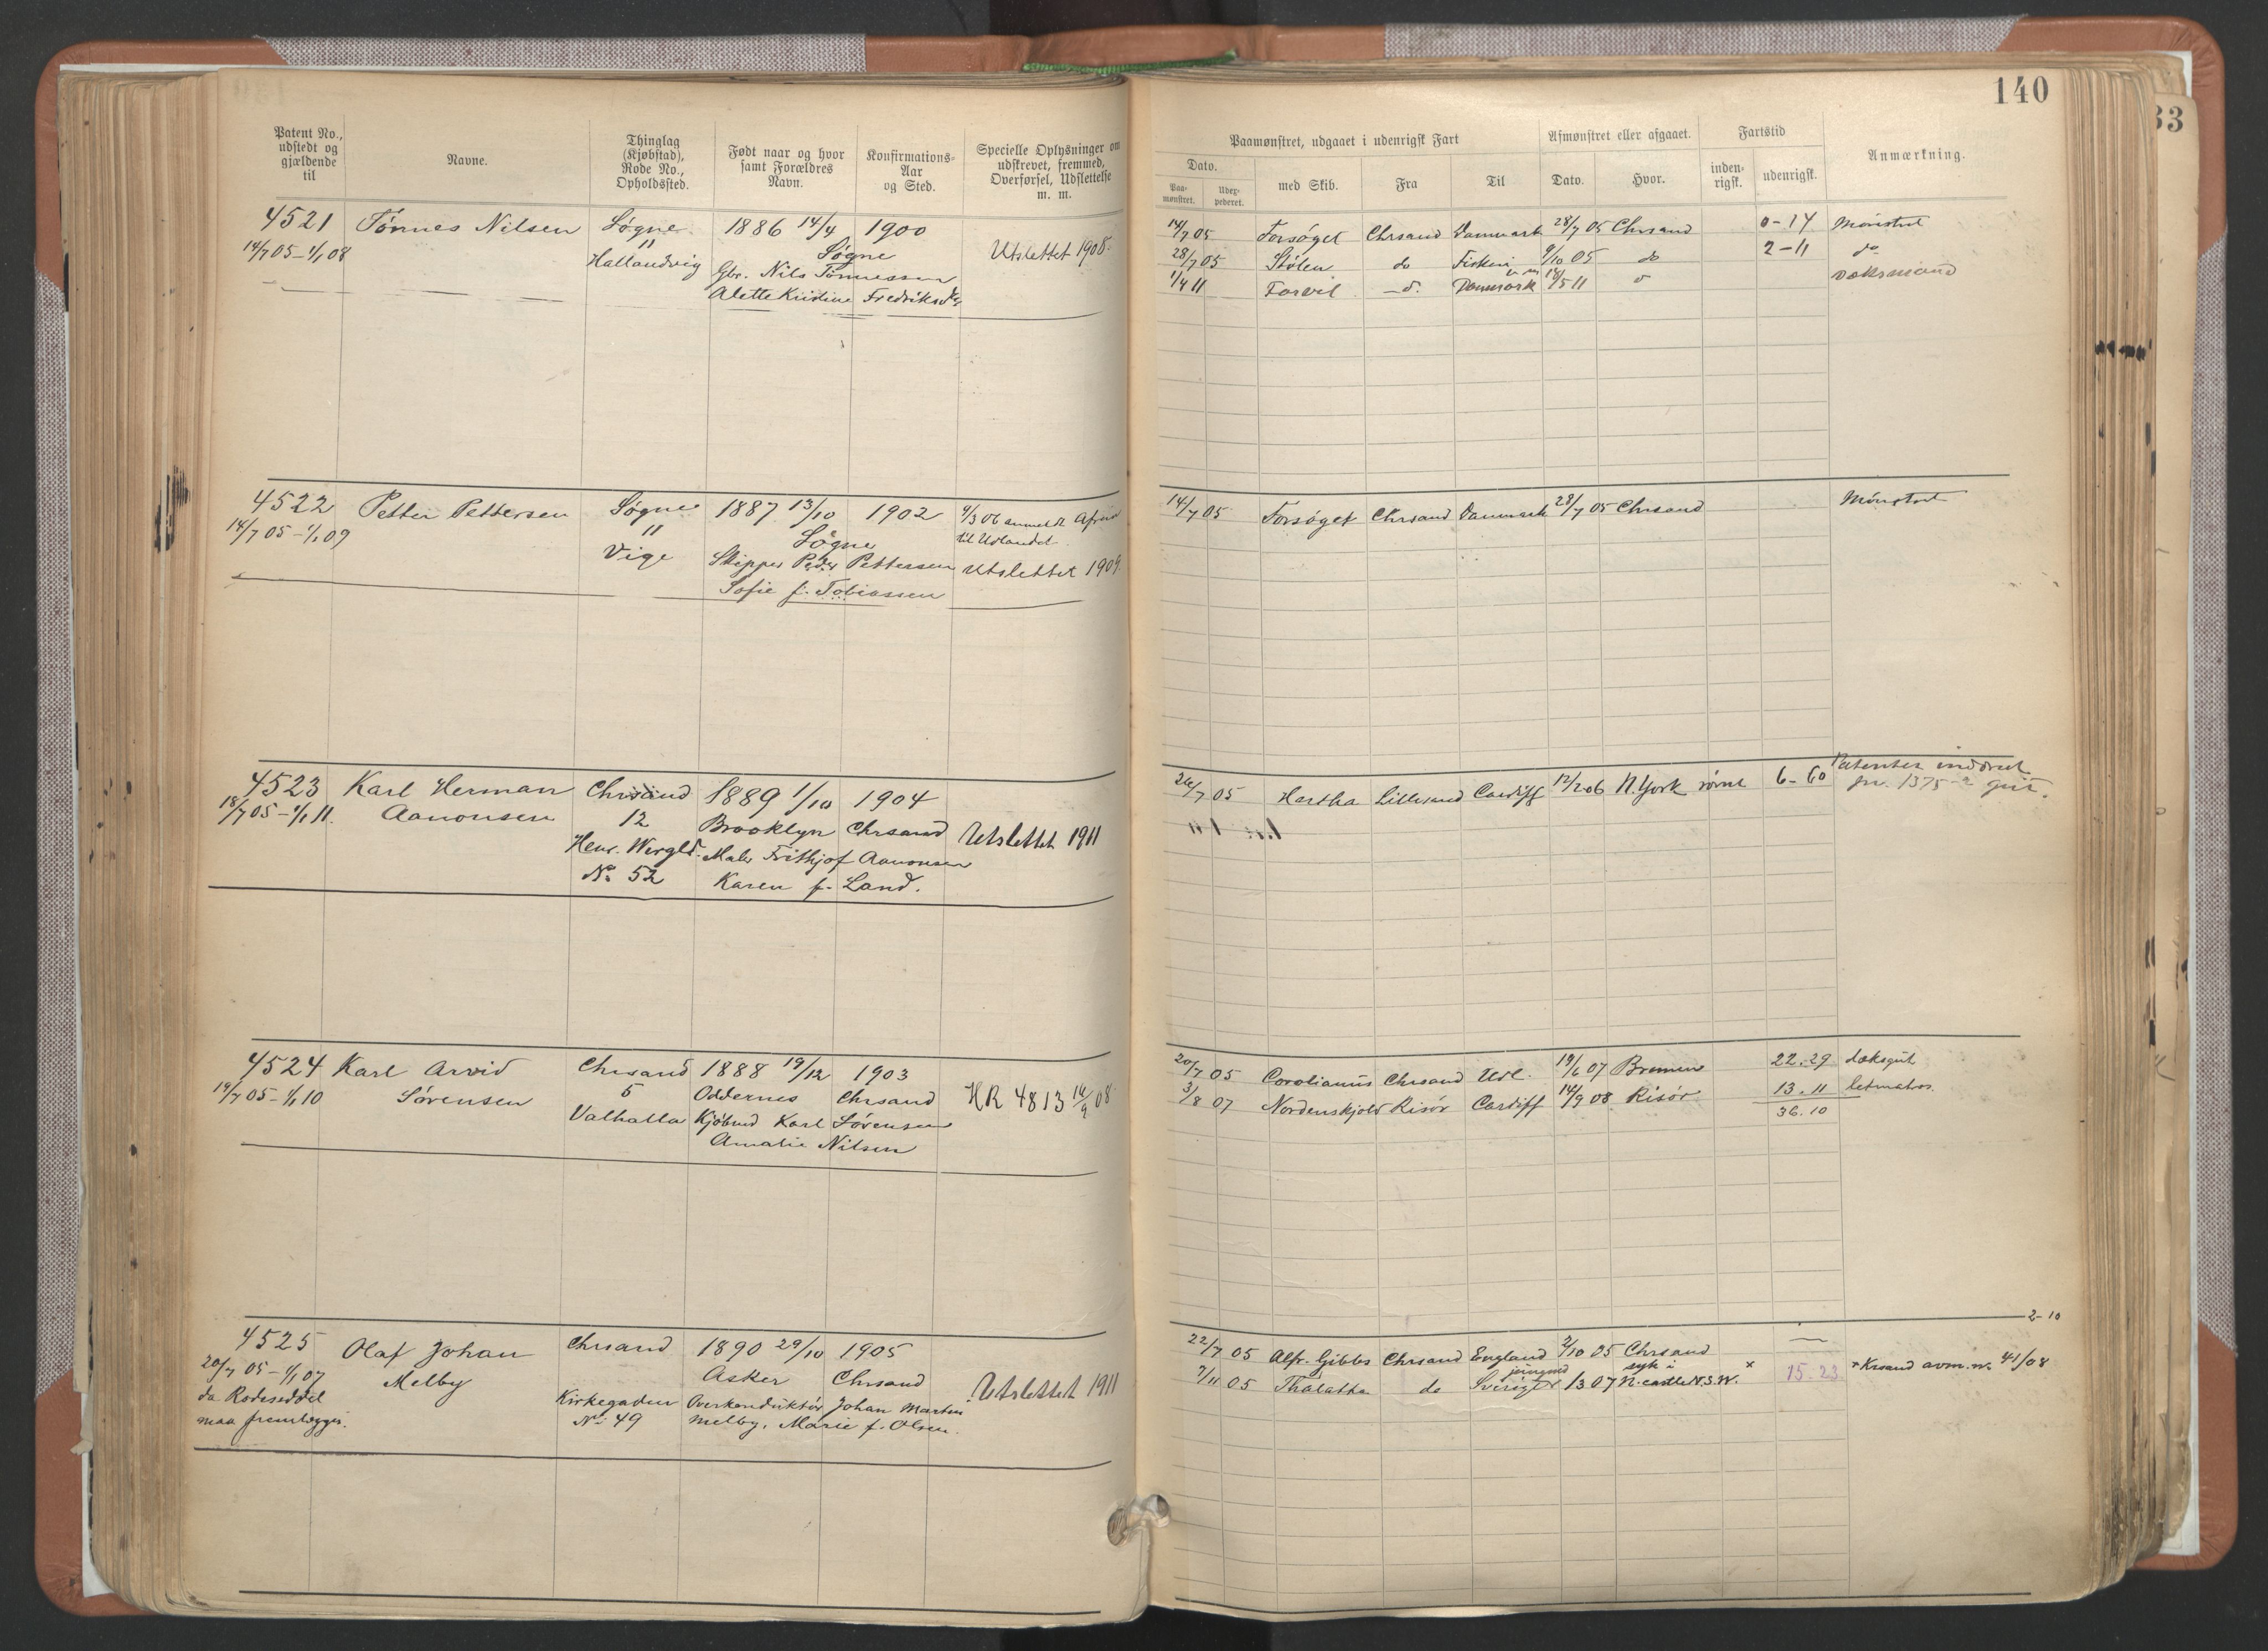 140
33
Patent No., udstedt og gjældende til
Navne.
Thinglag (Kjøbstad), Rode No., Opholdssted.
Født naar og hvor samt Forældres Navn.
Konfirmations-Aar og Sted.
Specielle Oplysninger om udskrevet, fremmed, Overførsel, Udslettelse m. m.
Paamønstret, udgaaet i udenrigsk Fart
Dato.
Paa-mønstret.
Udex-pederet.
med Skib.
Fra
Til
Afmønstret eller afgaaet.
Dato.
Hvor.
Fartstid
inden-rigsk.
udenrigsk.
Anmærkning.
4521 Tønnes Nilsen Søgne 1886 14/4 1900
14/7 05 – 1/1 08 " Søgne Utslettet 1908.
Hallandvig Gbr. Nils Tønnessen
Alette Kristine Fredriksd
14/7 05 Forsøget Chrsand Danmark 28/7 05 Chrsand 0–14 Mønstret
28/7 05 Stølen do Fiskeri 9/10 05 do 2–11 do
1/4 11 Farvel – d. Danmark 18/5 11 d Dæksmand
4522 Petter Pettersen Søgne 1887 13/10 1902 9/3 06 anmeldt Afreist
14/7 05 – 1/1 09 " Søgne til Udlandet
Vige Skipper Peder Pettersen Utslettet 1909.
Sofie f. Tobiassen
14/7 05 Forsøget Chrsand Danmark 28/7 05 Chrsand Mønstret
4523 Karl Herman Chrsand 1889 1/10 1904
18/7 05 – 1/1 11. Aanonsen 12 Brooklyn Chrsand Utslettet 1911
Henr. Wergld. Maler Frithjof Aanonsen
No 52 Karen f. Land.
26/7 05 Hertha Lillesand Cardiff 12/2 06 N. York rømt 6–60 Patentet inddraet
jnr. 1375
4524 Karl Arvid Chrsand 1888 19/12 1903
19/7 05 – 1/1 10 Sørensen 5 Oddernes Chrsand HR 4813 14/9 08
Valhalla Kjøbmd Karl Sørensen
Amalie Nilsen
20/7 05 Corolianus Chrsand Udl. 19/6 07 Bremen 22.29 dæksgut
3/8 07 Nordenskjold Risør Cardiff 14/9 08 Risør 13.11 letmatros
36.10
4525 Olaf Johan Chrsand 1890 29/10 1905
20/7 05 – 1/1 07 Melby Asker Chrsand Utslettet 1911
da Rodeseddel Kirkegaden Overkonduktør Johan Martin
maa fremlægges. No 49 Melby, Marie f. Olsen.
2–10
22/7 05 Alfr. Gibbs Chrsand England 2/10 05 Chrsand —
7/11 05 Thalatta do Sverige 1/3 07 syk i N.castle N.S.W. x 15.23 x Krsand avm. nr. 41/08